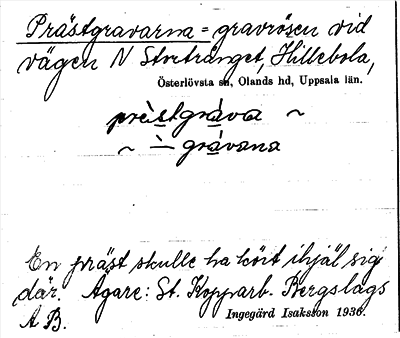 Prästgravarna = gravrösen vid
vägen N Stortränget, Hillebola,
Österlövsta sn, Olands hd, Uppsala län.
prè̱stgrá̱va ~
~ ∸ grá̱vana
En präst skulle ha kört ihjäl sig
där. Ägare: St. Kopparb. Bergslags
A B.
Ingegärd Isaksson 1936.